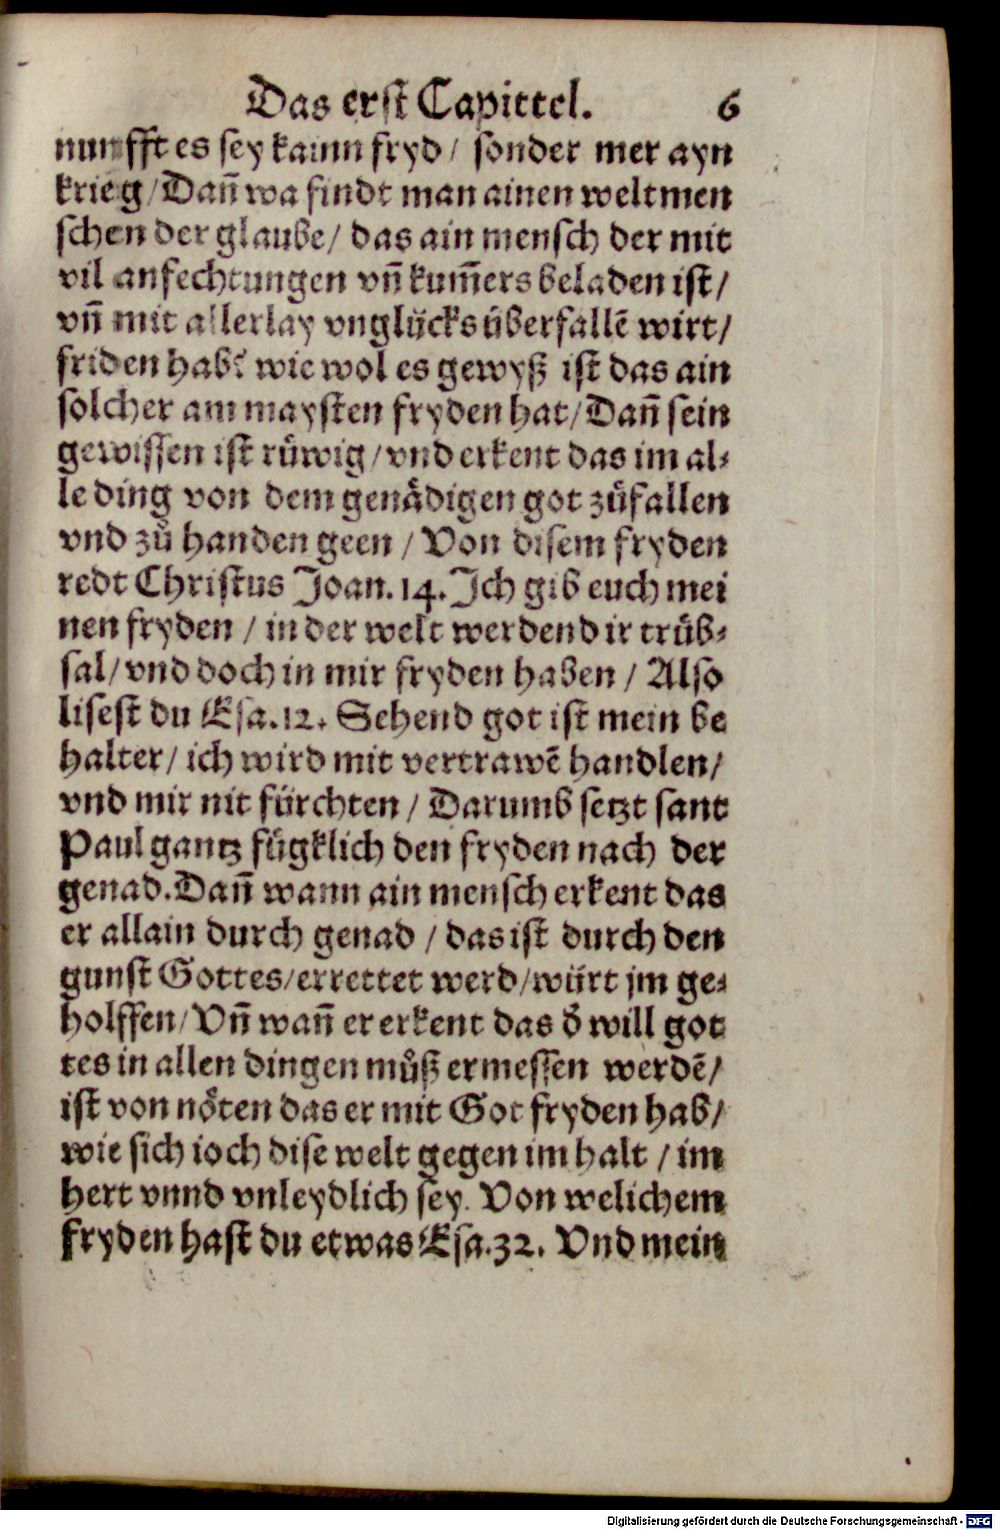 Das erst Capittel. 6
nunfft es sey kainn fryd / sonder mer ayn
krieg / Dañ wa findt man ainen weltmen
schen der glaube / das ain mensch der mit
vil anfechtungen vñ kum̃ers beladen ist /
vñ mit allerlay vnglücks überfallẽ wirt /
friden hab? wie wol es gewyß ist das ain
solcher am maysten fryden hat / Dañ sein
gewissen ist rüwig / vnd erkent das im al⸗
le ding von dem genädigen got zůfallen
vnd zů handen geen / Von disem fryden
redt Christus Joan. 14. Ich gib euch mei
nen fryden / in der welt werdend ir trüb⸗
sal / vnd doch in mir fryden haben / Also
lisest du Esa. 12. Sehend got ist mein be
halter / ich wird mit vertrawẽ handlen /
vnd mir nit fürchten / Darumb setzt sant
Paul gantz fügklich den fryden nach der
genad. Dañ wann ain mensch erkent das
er allain durch genad / das ist durch den
gunst Gottes / errettet werd / würt jm ge⸗
holffen / Vñ wañ er erkent das d̕ will got
tes in allen dingen můß ermessen werdẽ /
ist von nöten das er mit Got fryden hab /
wie sich ioch dise welt gegen im halt / im
hert vnnd vnleydlich sey. Von welichem
fryden hast du etwas Esa. 32. Vnd mein
Digitalisierung gefördert durch die Deutsche Forschungsgemeinschaft - DFG